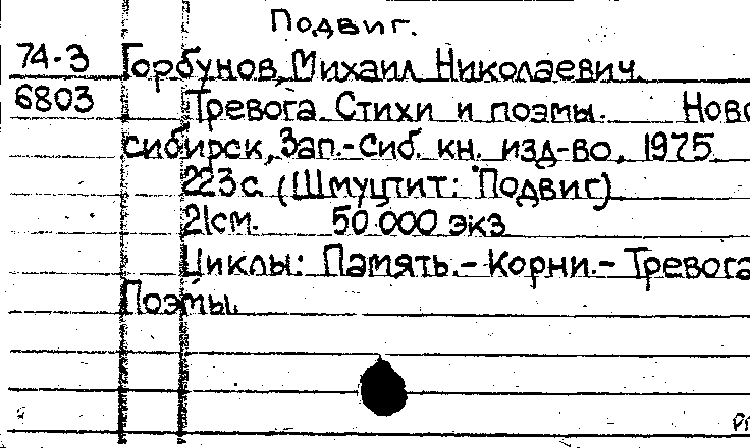 Подвиг.
74-3 Горбунов, Михаил Николаевич.
6803 Тревога. Стихи и поэмы. Ново
сибирск, Зап.-Сиб. кн. изд-во, 1975.
223с. (Шмуцтит: Подвиг)
21см. 50.000 экз
Циклы: Память.-Корни.- Тревога
Поэмы.